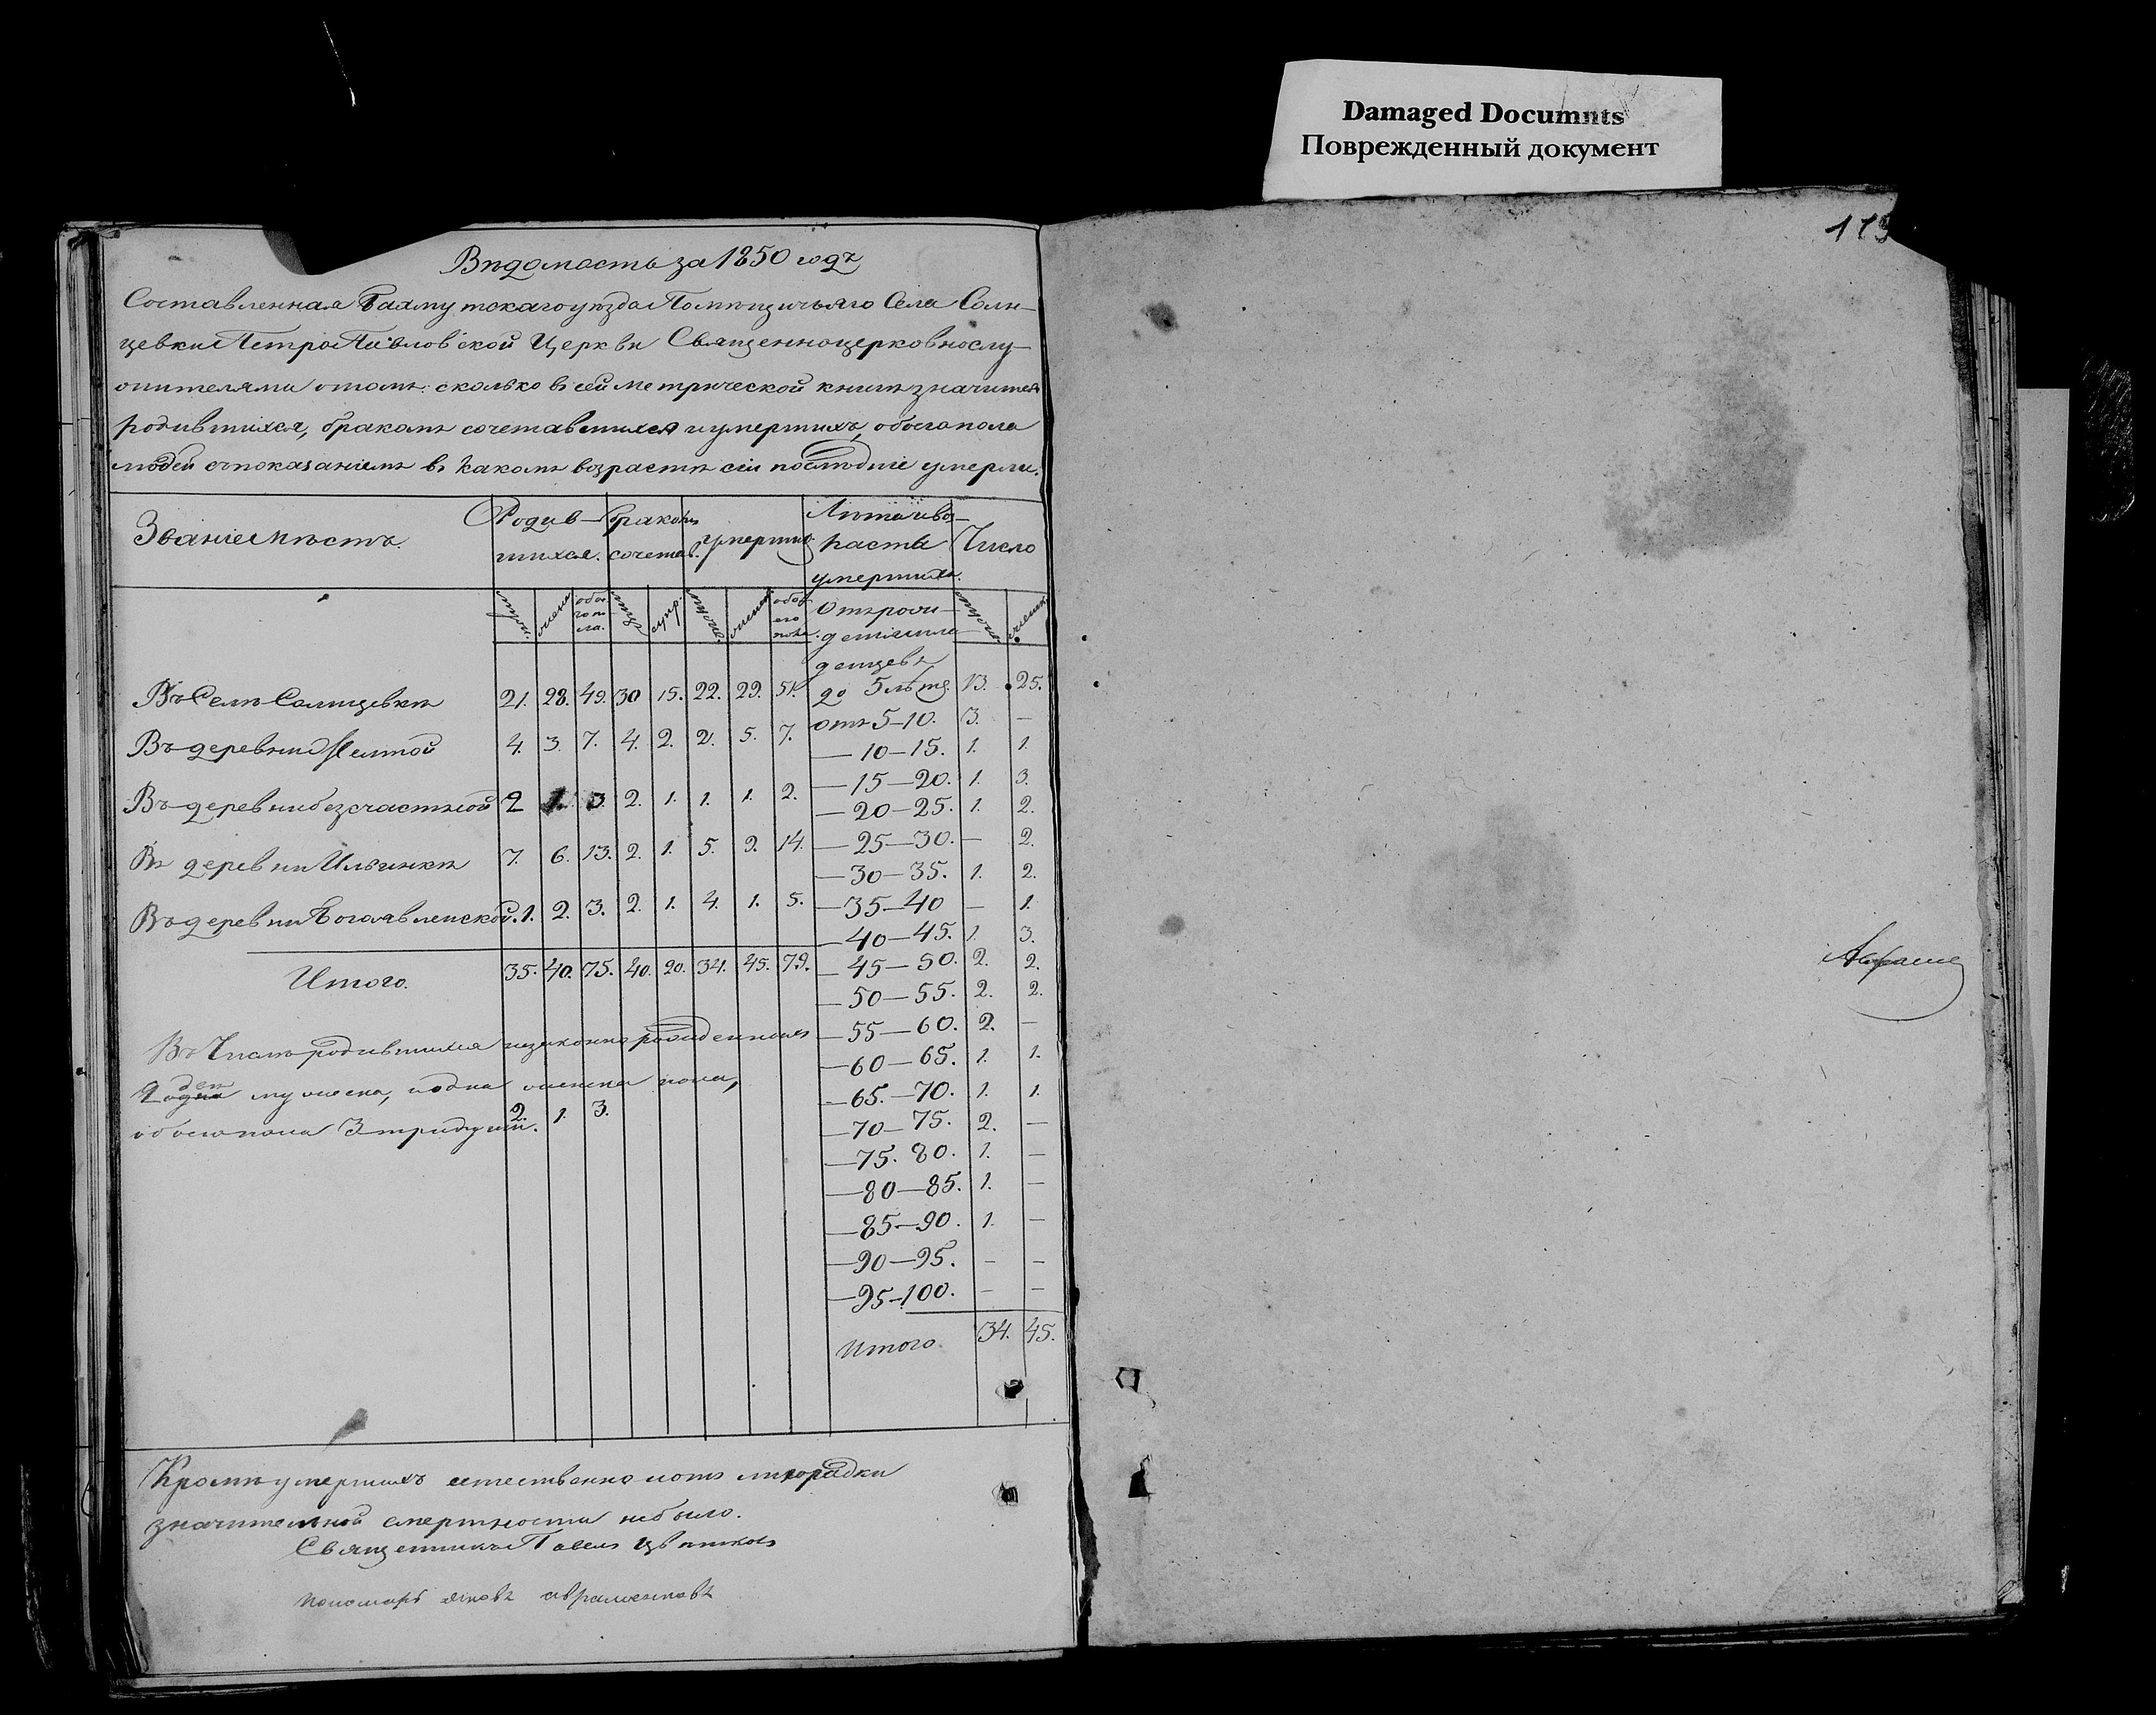 Damaged Documnts
Поврежденный документ
Вѣдомость за 1850 годъ
Составленная Бахмутскаго уѣзда Помѣщичьяго Села Солн-
цевки Петро Павловской Церкви Священноцерковнослу-
жителями о томъ: сколько въ сей метрической книгѣ значится
родившихся, бракомъ сочетавшихся и умершихъ, обоего пола
людей съ показаніемъ въ какомъ возрастѣ сіи послѣдніе умерли.
Званіе мѣстъ. Родив- Бракомъ умерших Лѣта и воз- Число
шихся. сочетав. раста
умершихъ.
муж. женс. обое го по ла. муж. супр. муж. женс. обо его пола. Отъ рожденія младенцевъ муж. женс.
Въ Селѣ Солнцевкѣ 21. 28. 49. 30 15. 22. 29. 51. до 5 лѣтъ. 13. 25.
отъ 5-10. 3. —
Въ деревни Желтой 4. 3. 7. 4. 2. 2. 5. 7.
— 10-15. 1. 1.
— 15-20. 1. 3.
Въ деревни безсчастной 2 1. 3. 2. 1. 1. 1. 2.
— 20-25. 1. 2.
— 25-30. — 2.
Въ деревни Ильинкѣ 7. 6. 13. 2. 1. 5. 9. 14.
— 30-35. 1. 2.
— 35-40 — 1.
Въ деревни Богоявленской. 1. 2. 3. 2. 1. 4. 1. 5.
— 40-45. 1. 3.
Итого. 35. 40. 75. 40. 20. 34. 45. 79.
— 45-50. 2. 2.
— 50-55. 2. 2.
— 55-60. 2. —
— 60-65. 1. 1.
— 65.-70. 1. 1.
— 70-75. 2. —
— 75. 80. 1. —
— 80-85. 1. —
— 85-90. 1. —
— 90-95. — —
— 95-100. — —
Итого. 34. 45.
Въ Числѣ родившихся незаконно рожденныхъ
мужеска, и одна женска пола,
обоего пола 3 три души. 2. 1. 3.
Кромѣ умершихъ естественно и отъ лихорадки
значительной смертности не было.
Священникъ Павелъ Цвѣтковъ
пономарь Яковъ Авраменковъ